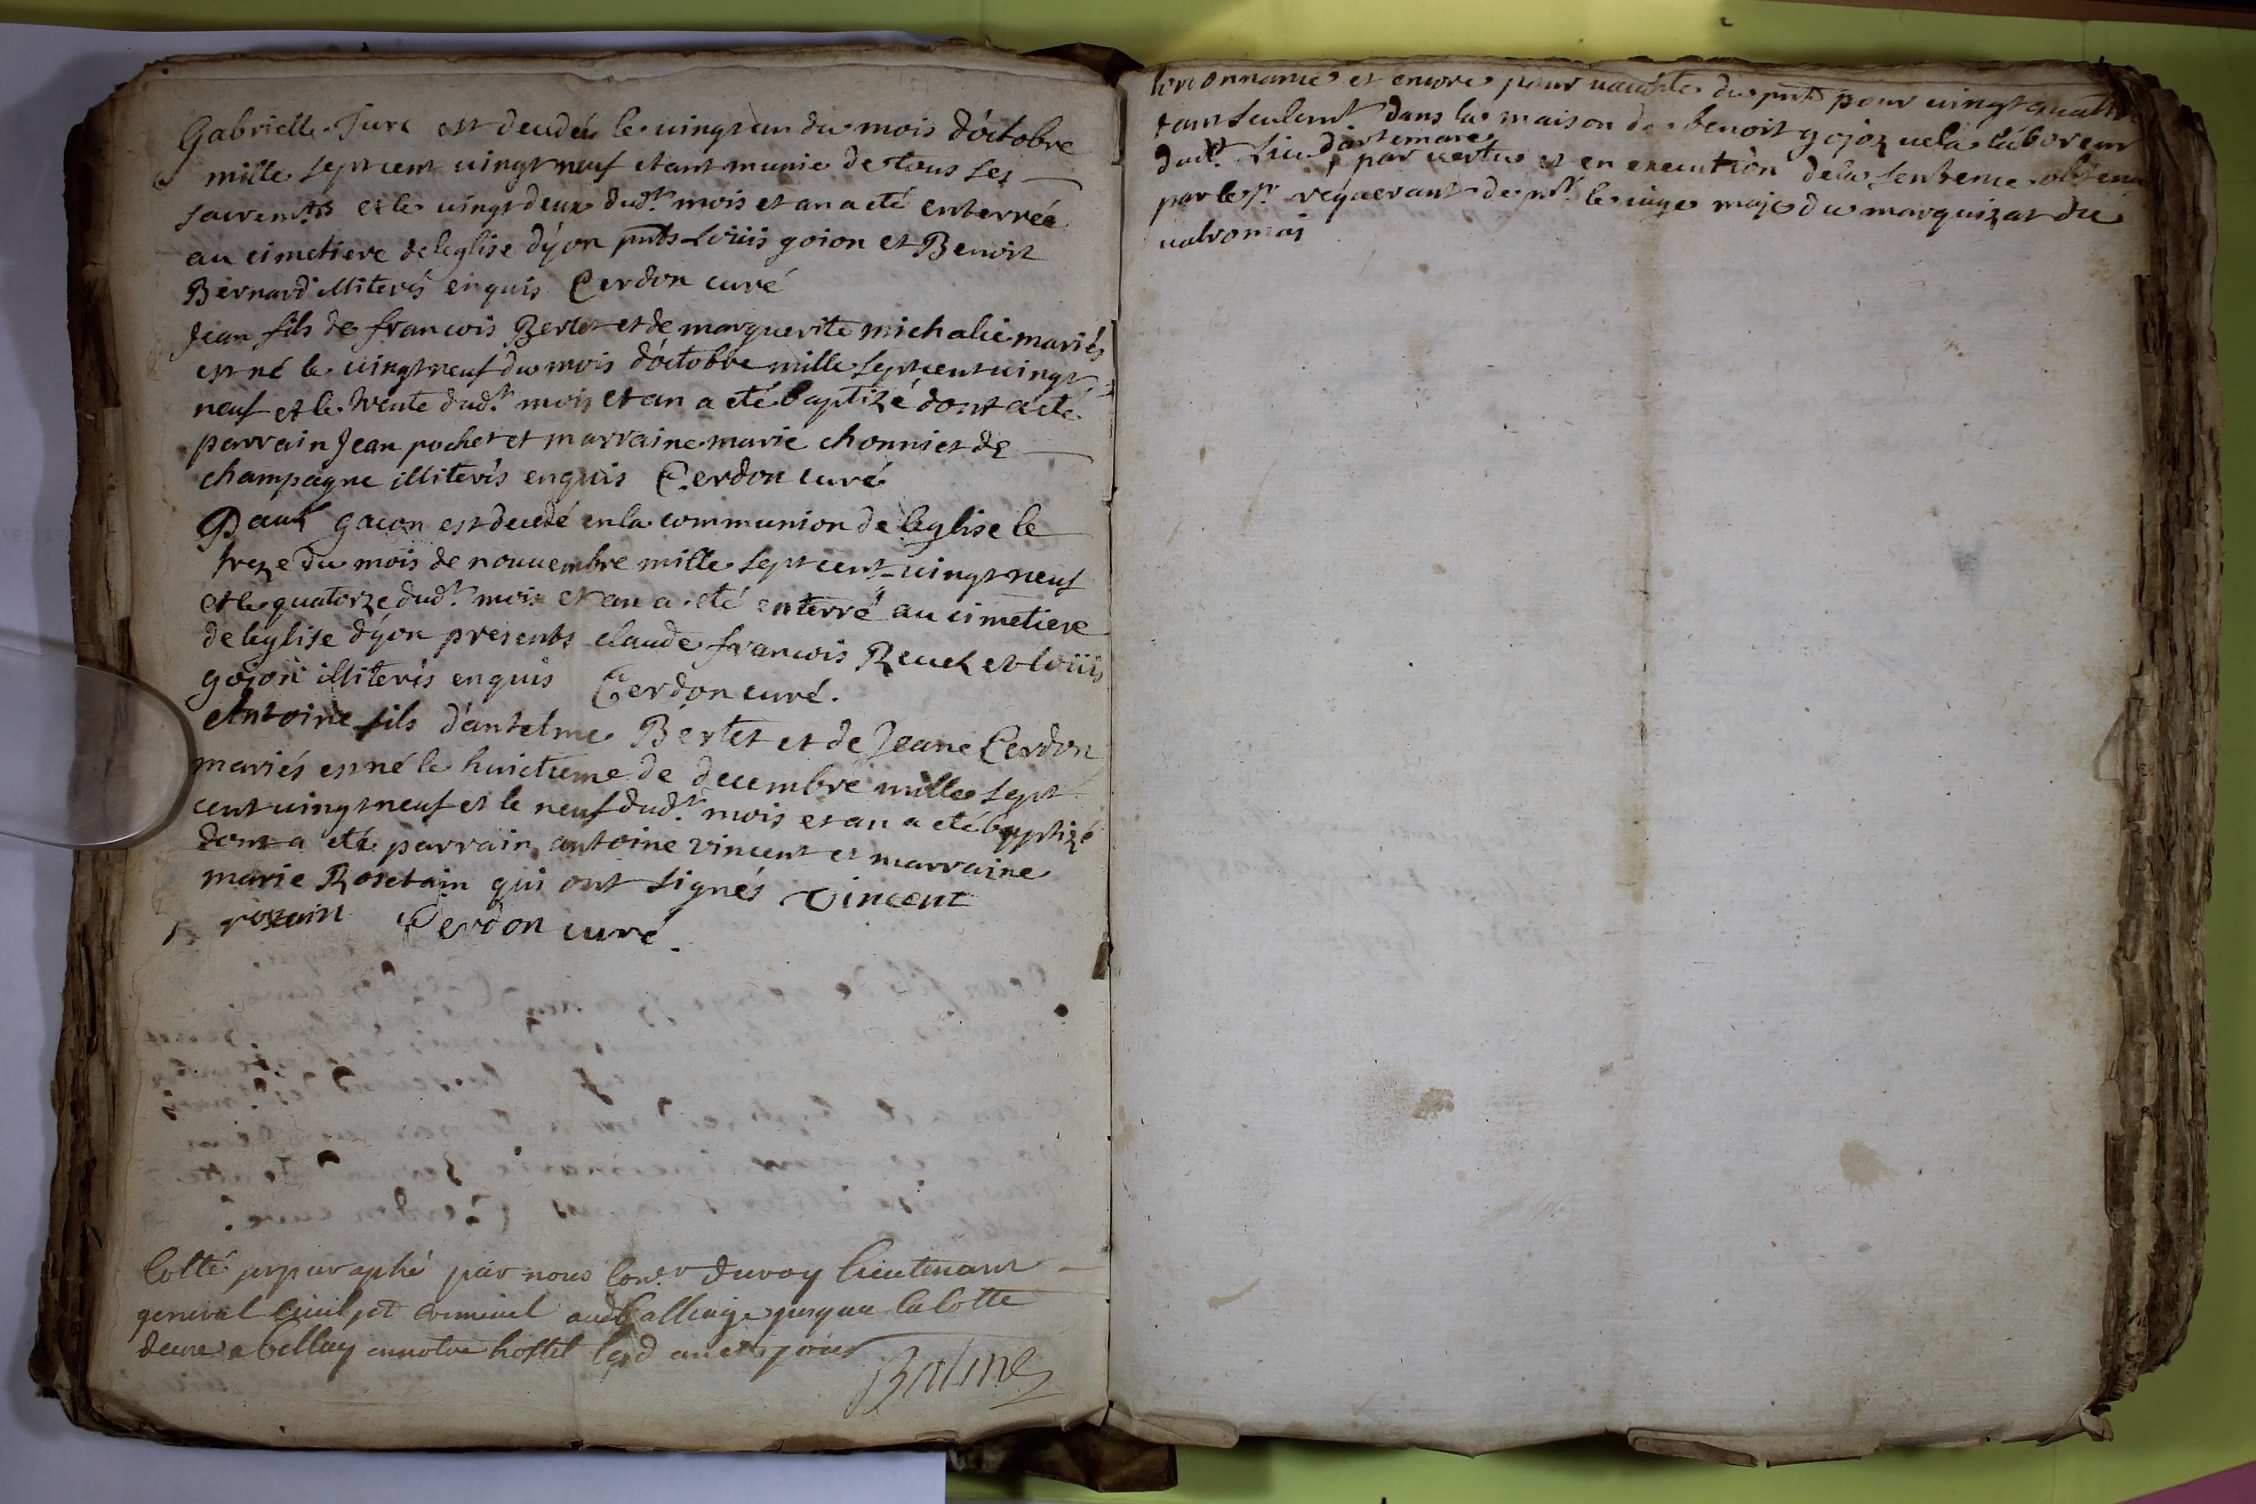 Gabrielle Jura est decedeé le uingt un du mois d'óctobre
mille sept cent uingt neuf etant munie de tous ses
sacremts et le uingt deux dudt mois et an a eté enterrée
au cimetiere de leglise dÿon pnts Loüis goion et Benoit
Bernard illiterés enquis Cerdon curé
Jean fils de francois Bertet et de marguerite michalié mariés
est né le uingt neuf du mois d'óctobre mille sept cent uingt
neuf et le trente dudt mois et an a eté baptizé dont a eté
parrain Jean pochet et marraine marie chonniet de
champagne illiterés enquis Cerdon curé
Paul gacon est decedé en la communion de leglise le
treze du mois de nouuembre mille sept cent uingt neuf
et le quatorze dudt mois et an a eté enterré au cimetiere
de leglise dÿon presents claude francois Reuel et loüis
goion illiterés enquis Cerdon curé.
Antoine fils d'antelme Bertet et de Jeane Cerdon
mariés est né le huictieme de decembre mille sept
cent uingt neuf et le neuf dudt mois et an a eté baptizé
dont a eté parrain antoine vincent et marraine
marie Rosetain qui ont signés Vincent
Cerdon curé.
Cotté et paraphé par nous lieutenant
general ciuil et criminel au balliage jusqua la cotte
a bellay en notre hostel an et jour
et encore pour pour uingt quatre
tant seulemt dans la maison de benoit gojoz laboreur
dudt Lieu d'artemare par vertu et en execution de la sentence obtenue
par le sr requerant de mr le iuge maje du marquizat du
ualromai